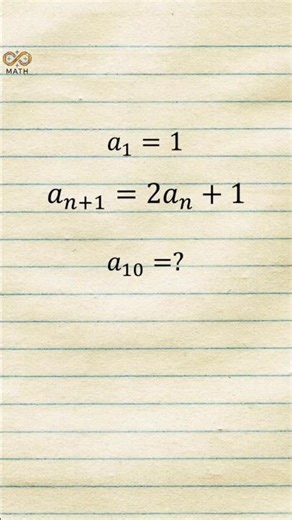 MATH
a₁ = 1
aₙ₊₁ = 2aₙ + 1
a₁₀ =?